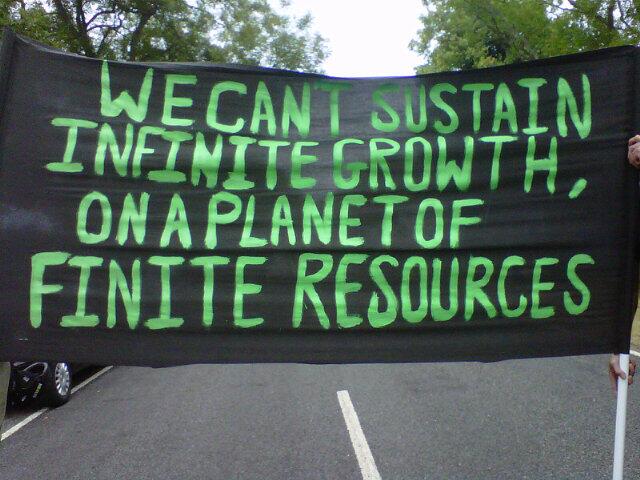 WE CANT SUSTAIN
INFINITE GROWTH,
ON A PLANET OF
FINITE RESOURCES